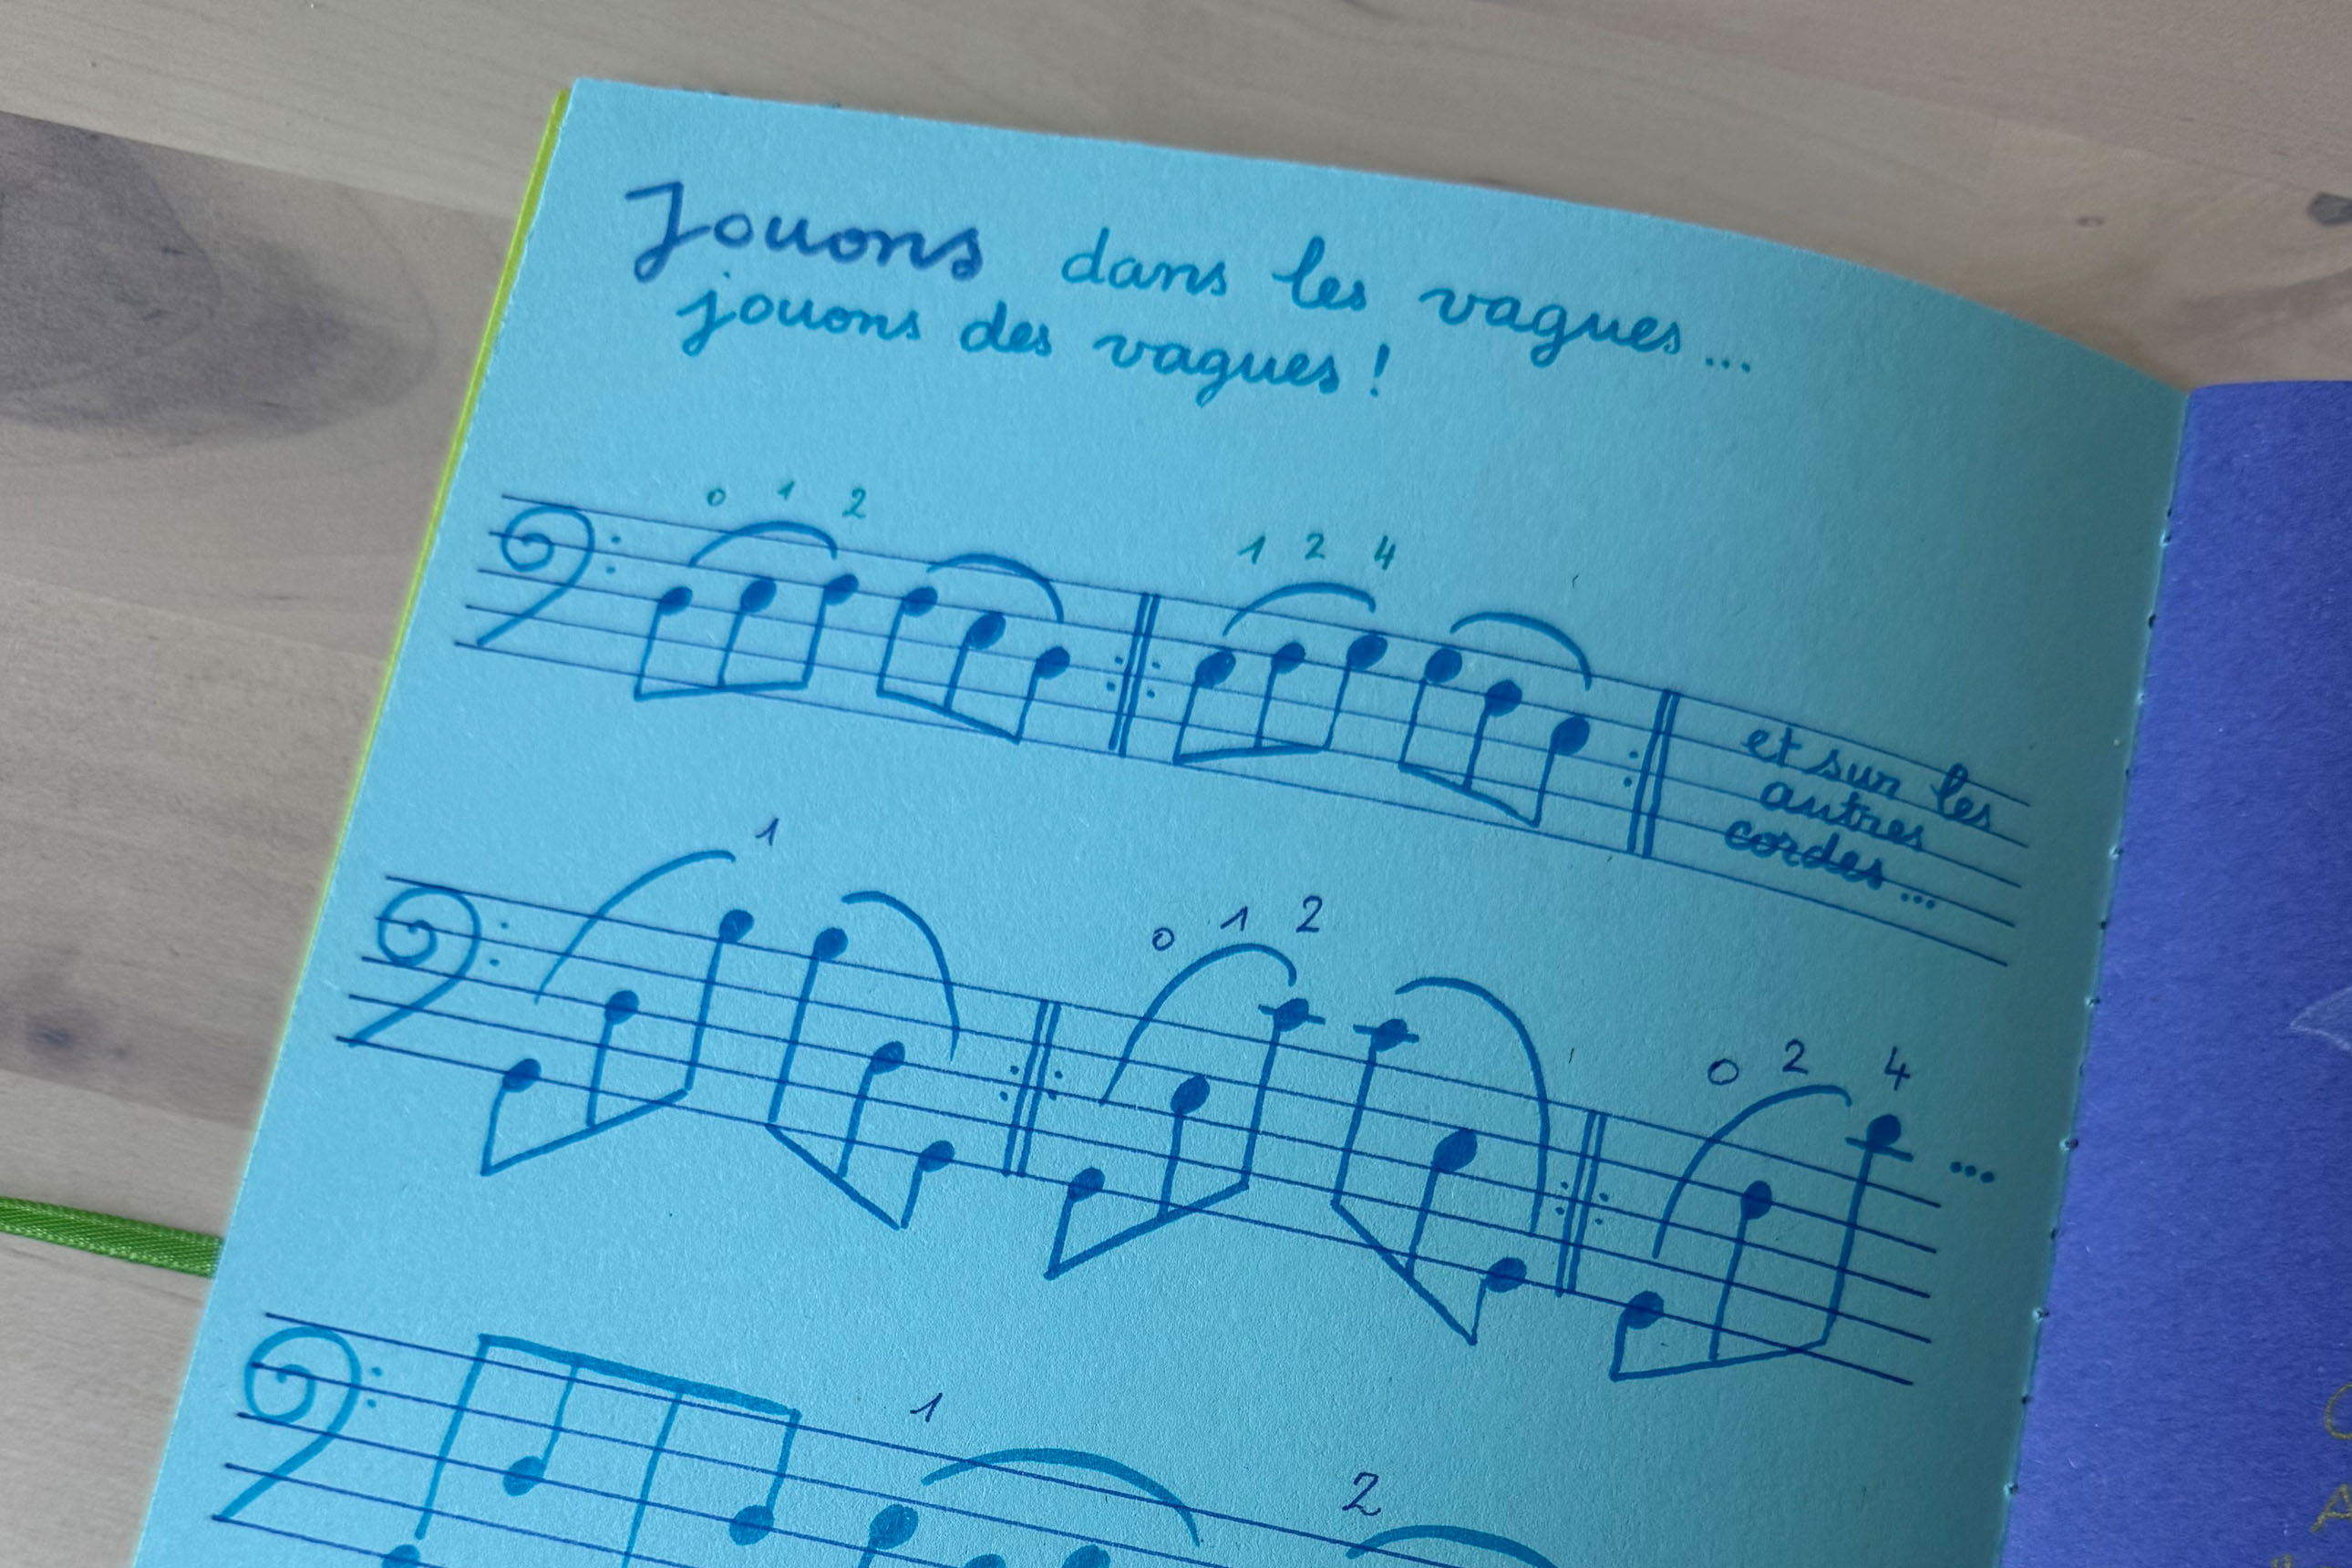 Jouons dans les vagues...
jouons des vagues !
0 1 2
1 2 4
et sur les
autres
cordes...
1
0 1 2
0 2 4
...
1
2